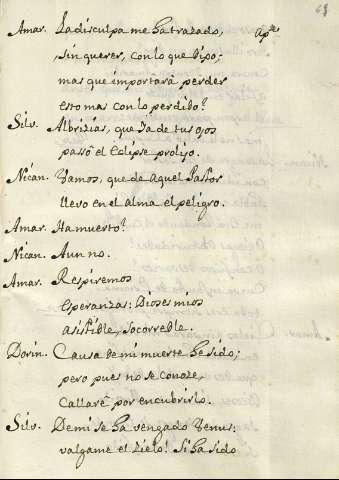 63
Amar. La disculpa me ha trazado, apte
sin querer, con lo que dijo;
mas que importará perder
esto mas con lo perdido?
Silv. Albrizias, que ya de tus ojos
passò el Eclipse prolijo.
Nican. Vamos, que de aquel Pastor
llevo en el alma el peligro.
Amar. Ha muerto?
Nican. Aun no.
Amar. Respiremos
esperanzas: Dioses mios
asistidle, socorredle.
Dorin. Causa de mi muerte he sido;
pero pues no se conoze,
callarè por encubrirlo.
Silv. De mi se ha vengado Venus:
valgame el Zielo! Si ha sido